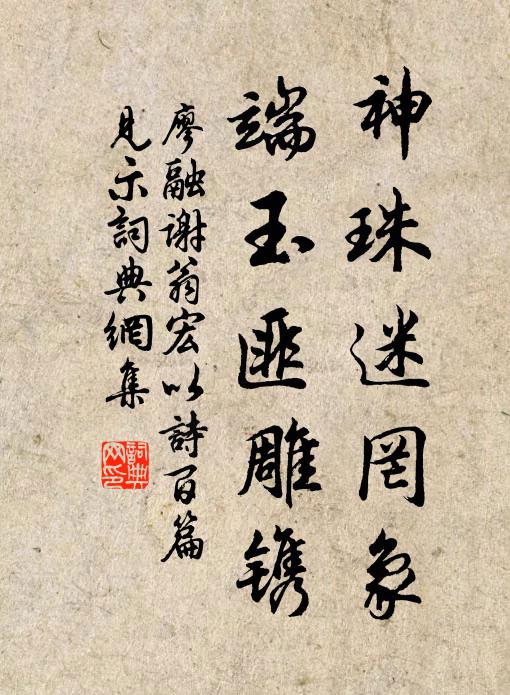 神珠迷罔象
端玉匪雕镌
廖融谢翁宏以詩百篇
見示詞典網集
詞典網印